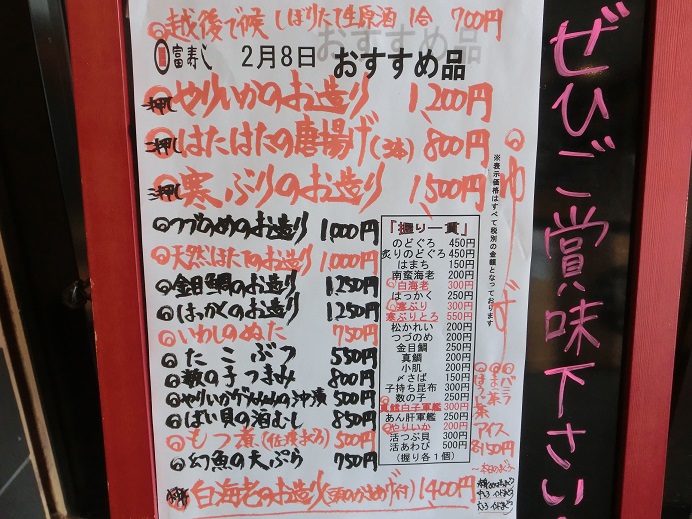 越後で候 しぼりたて生原酒 1合 700円
富寿し 2月8日 おすすめ品
一押し やりいかのお造り 1,200円
二押し はたはたの唐揚げ(3本) 800円
三押し 寒ぶりのお造り 1,500円
つづのめのお造り 1,000円
天然ほたてのお造り 1,000円
金目鯛のお造り 1,250円
はっかくのお造り 1,250円
いわしのぬた 750円
たこぶつ 550円
数の子つまみ 800円
やりいかゲソの沖漬 500円
ばい貝の酒むし 850円
もつ煮(佐渡まぐろ) 500円
幻魚の天ぷら 750円
白海老のお造り 1400円
「握り一貫」
のどぐろ 450円
炙りのどぐろ 450円
はまち 150円
南蛮海老 200円
白海老 300円
はっかく 250円
寒ぶり 300円
寒ぶりとろ 550円
松かれい 200円
つづのめ 200円
金目鯛 250円
真鯛 200円
小肌 200円
〆さば 150円
子持ち昆布 300円
数の子 250円
真鱈白子軍艦 300円
あん肝軍艦 250円
やりいか 200円
活つぶ貝 300円
活あわび 500円
(握り各1個)
※表示価格はすべて税別の金額となっております
ゆず
バニラ
ほうじ茶
アイス
各150円
ぜひご賞味下さい